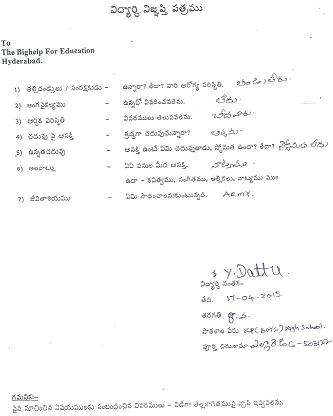 విద్యార్ధి విజ్ఞప్తి పత్రము
To
The Bighelp For Education
Hyderabad.
1) తల్లిదండ్రులు / సంరక్షకుడు - ఉన్నారా? లేదా? వారి ఆరోగ్య పరిస్థితి. తండ్రి లేరు
2) అంగవైకల్యము - ఉన్నచో వివరించవలెను. లేదు
3) ఆర్థిక పరిస్థితి - వివరములు తెలుపవలెను. పేదవారు
4) చదువు పై ఆసక్తి - శ్రద్ధగా చదువుచున్నారా?
5) ఉన్నతచదువు - ఆసక్తి ఉంటే ఏమి చదువుతాడు, స్తోమత ఉందా? లేదా? స్తోమత లేదు
6) అలవాట్లు - ఏఏ పనుల మీద ఆసక్తి. నాట్యము
ఉదా - కవిత్వము, సంగీతము, ఆర్టికలు, నాట్యము మొ॥
7) జీవితాశయము - ఏమి సాధించాలనుకుంటున్నది. ARMY.
Y. Dattu
విద్యార్థి సంతకం
తేది. 17-04-2015
తరగతి
పాఠశాల పేరు ZP(BOYS) High School.
పూర్తి చిరునామా ఎల్లారెడ్డి - 503122
గమనిక:-
పైన సూచించిన విషయములకు సంబంధించిన వివరములు - విడిగా తెల్లకాగితముపై వ్రాసి ఇవ్వవలెను.